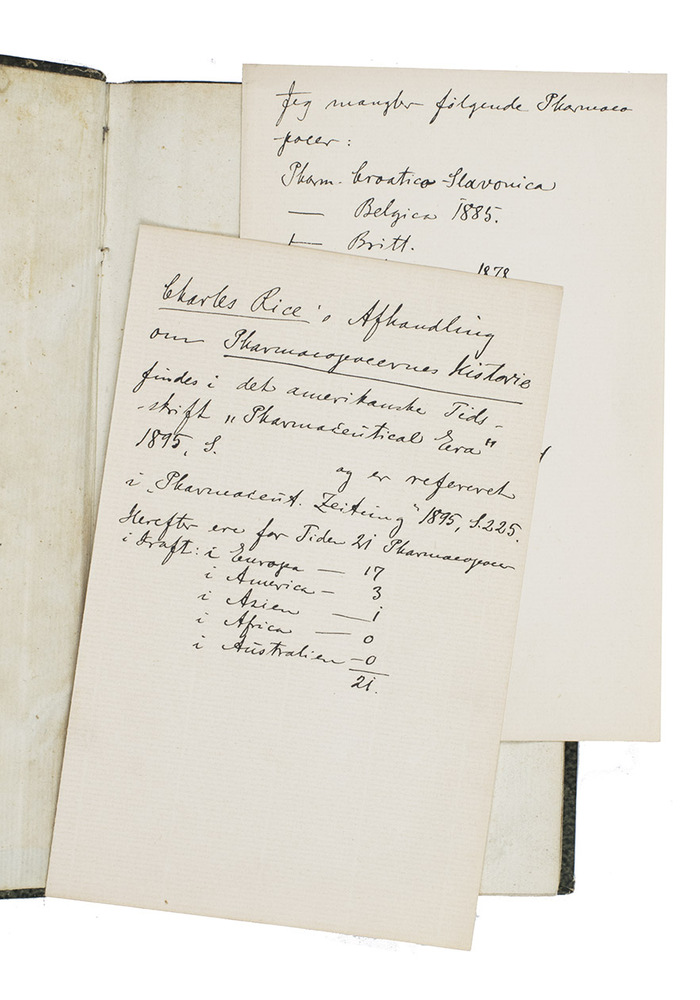 Jeg mangler følgende Pharmaco
poeer:
Pharm. Croatico-Slavonica
— Belgica 1885.
— Britt.
1878
Charles Rice's Afhandling
om Pharmacopoeernes Historie
findes i det amerikanske Tids-
-skrift „Pharmaceutical Era"
1895, S.
og er refereret
i „Pharmaceut. Zeitung" 1895, S. 225.
Herefter ere for Tiden 21 Pharmacopoeer
i Kraft: i Europa — 17
i America — 3
i Asien — 1
i Africa — 0
i Australien — 0
21.